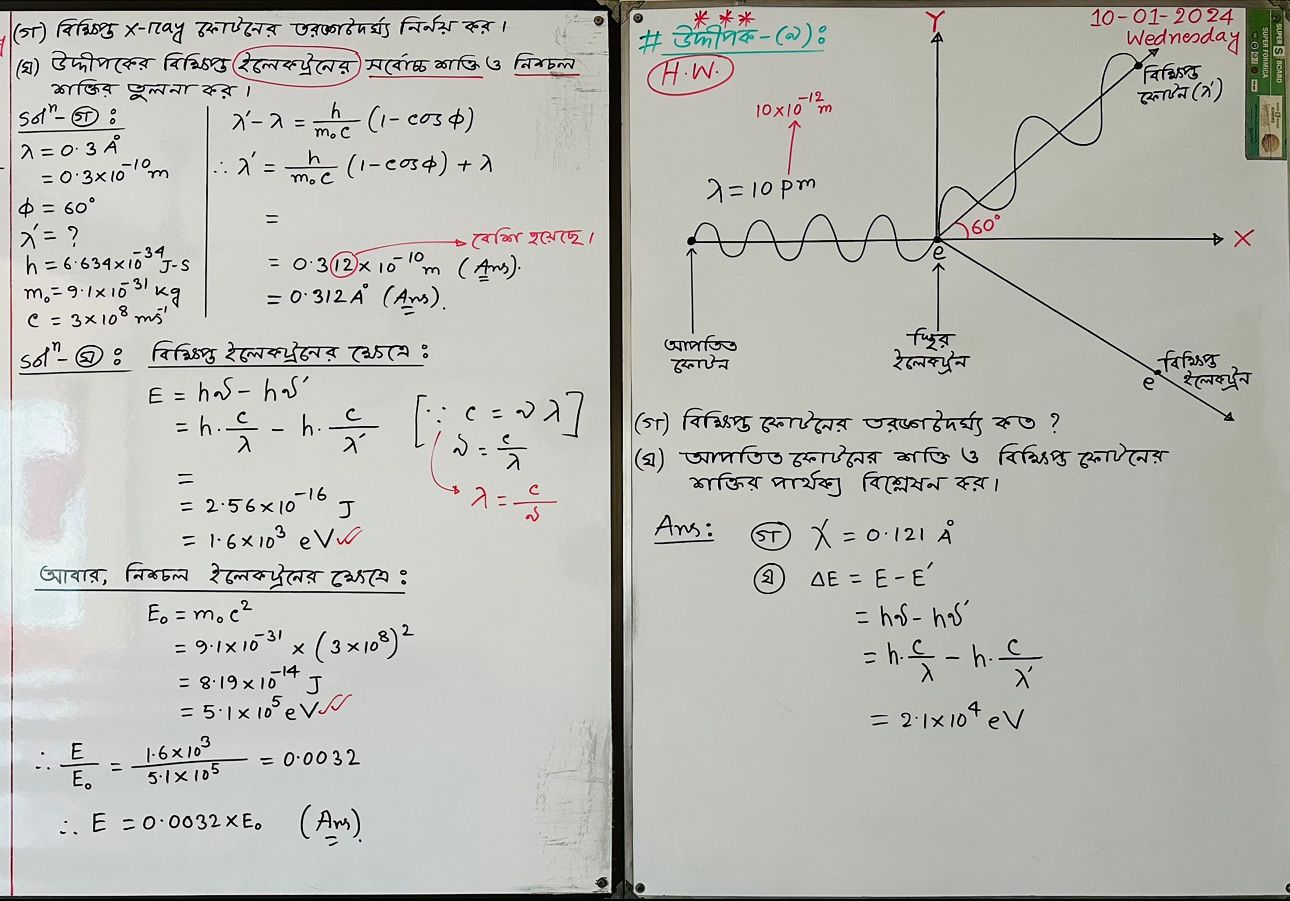 (গ) বিক্ষিপ্ত X-ray ফোটনের তরঙ্গদৈর্ঘ্য নির্নয় কর।
(ঘ) উদ্দীপকের বিক্ষিপ্ত ইলেকট্রনের সর্বোচ্চ শক্তি ও নিশ্চল
শক্তির তুলনা কর।
Solⁿ - (গ) :
λ = 0.3 Å
= 0.3×10⁻¹⁰ m
ϕ = 60°
λ′ = ?
h = 6.634×10⁻³⁴ J-S
m₀ = 9.1×10⁻³¹ kg
c = 3×10⁸ ms⁻¹
λ′ - λ = h/m₀c (1 - cos ϕ)
∴ λ′ = h/m₀c (1 - cos ϕ) + λ
=
বেশি হয়েছে।
= 0.312×10⁻¹⁰ m (Ans).
= 0.312 Å (Ans).
Solⁿ - (ঘ) : বিক্ষিপ্ত ইলেকট্রনের ক্ষেত্রে :
E = hν - hν′
= h. c/λ - h. c/λ′
[∵ c = ν λ]
ν = c/λ
λ = c/ν
=
= 2.56×10⁻¹⁶ J
= 1.6×10³ eV
আবার, নিশ্চল ইলেকট্রনের ক্ষেত্রে :
E₀ = m₀c²
= 9.1×10⁻³¹ × (3×10⁸)²
= 8.19×10⁻¹⁴ J
= 5.1×10⁵ eV
∴ E/E₀ = 1.6×10³/5.1×10⁵ = 0.0032
∴ E = 0.0032×E₀ (Ans).
10-01-2024
Wednesday
# উদ্দীপক-(২) :
H.W.
Y
বিক্ষিপ্ত
ফোটন (λ′)
10×10⁻¹² m
λ = 10 pm
60°
X
e
আপতিত
ফোটন
স্থির
ইলেকট্রন
e বিক্ষিপ্ত
ইলেকট্রন
(গ) বিক্ষিপ্ত ফোটনের তরঙ্গদৈর্ঘ্য কত ?
(ঘ) আপতিত ফোটনের শক্তি ও বিক্ষিপ্ত ফোটনের
শক্তির পার্থক্য বিশ্লেষন কর।
Ans: (গ) λ′ = 0.121 Å
(ঘ) ΔE = E - E′
= hν - hν′
= h. c/λ - h. c/λ′
= 2.1×10⁴ eV
SUPER S BOARD
SUPER FORMICA